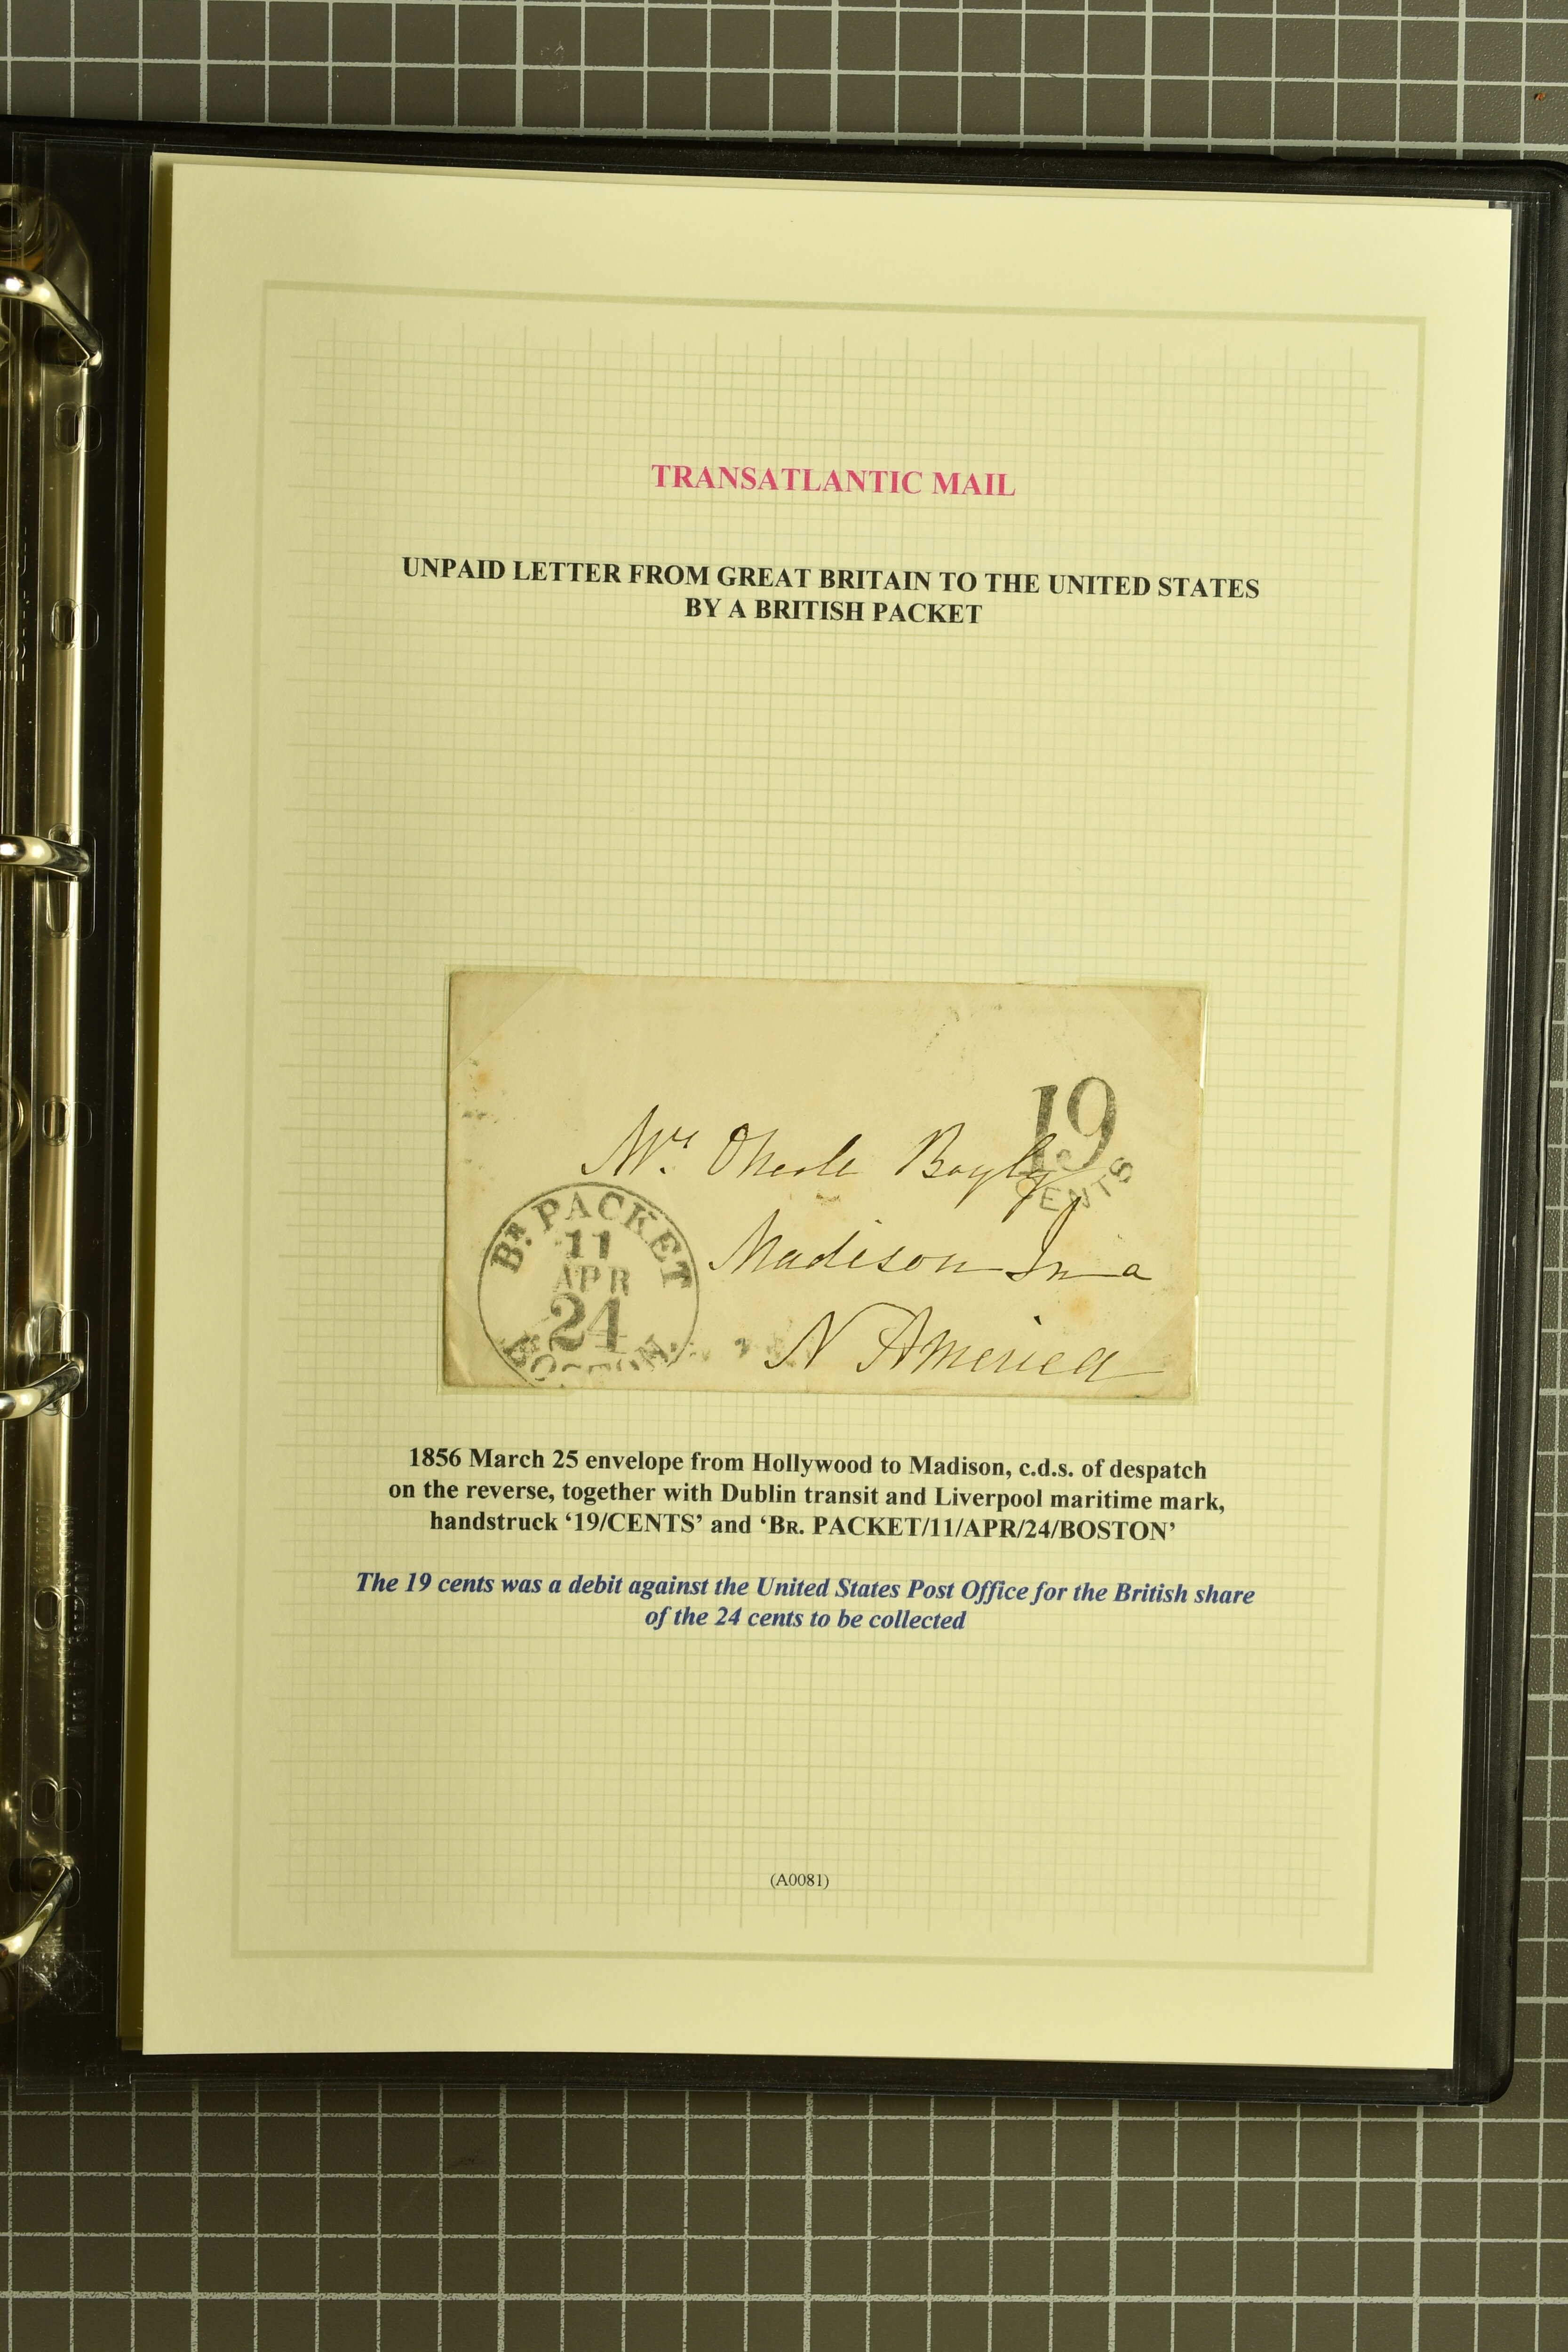 TRANSATLANTIC MAIL
UNPAID LETTER FROM GREAT BRITAIN TO THE UNITED STATES
BY A BRITISH PACKET
19
CENTS
Mr. Bayly
Madison In a
N America
BR. PACKET
11
APR
24
BOSTON.
1856 March 25 envelope from Hollywood to Madison, c.d.s. of despatch
on the reverse, together with Dublin transit and Liverpool maritime mark,
handstruck ‘19/CENTS’ and ‘BR. PACKET/11/APR/24/BOSTON’
The 19 cents was a debit against the United States Post Office for the British share
of the 24 cents to be collected
(A0081)